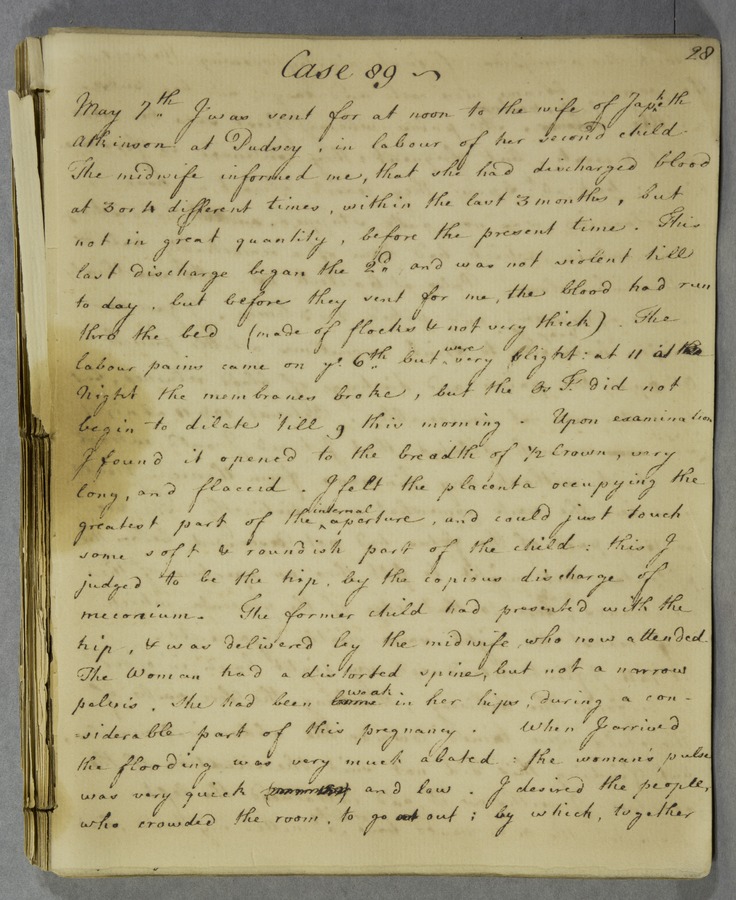 28
Case 89
May 7th. I was sent for at noon to the wife of Japheth
Atkinson at Pudsey, in labour of her second child
The midwife informed me, that she had discharged blood
at 3 or 4 different times, within the last 3 months, but
not in great quantity, before the present time. This
last discharge began the 2d. and was not violent till
to day, but before they sent for me, the blood had run
thro the bed (made of flocks & not very thick). The
labour pains came on ye. 6th. but were very slight: at 11 at
Night the membranes broke, but the Os T. did not
begin to dilate 'till 9 this morning. Upon examination
I found it opened to the breadth of ½ Crown, very
long, and flaccid. I felt the placenta occupying the
greatest part of the internal aperture, and could just touch
some soft & roundish part of the child: this I
judged to be the hip, by the copious discharge of
meconium. The former child had presented with the
hip, & was delivered by the midwife who now attended.
The Woman had a distorted spine, but not a narrow
pelvis. She had been weak in her hips, during a con-
=siderable part of this pregnancy. When I arrived
the flooding was very much abated: the woman's pulse
was very quick and low. I desired the people,
who crowded the room, to go out; by which, together